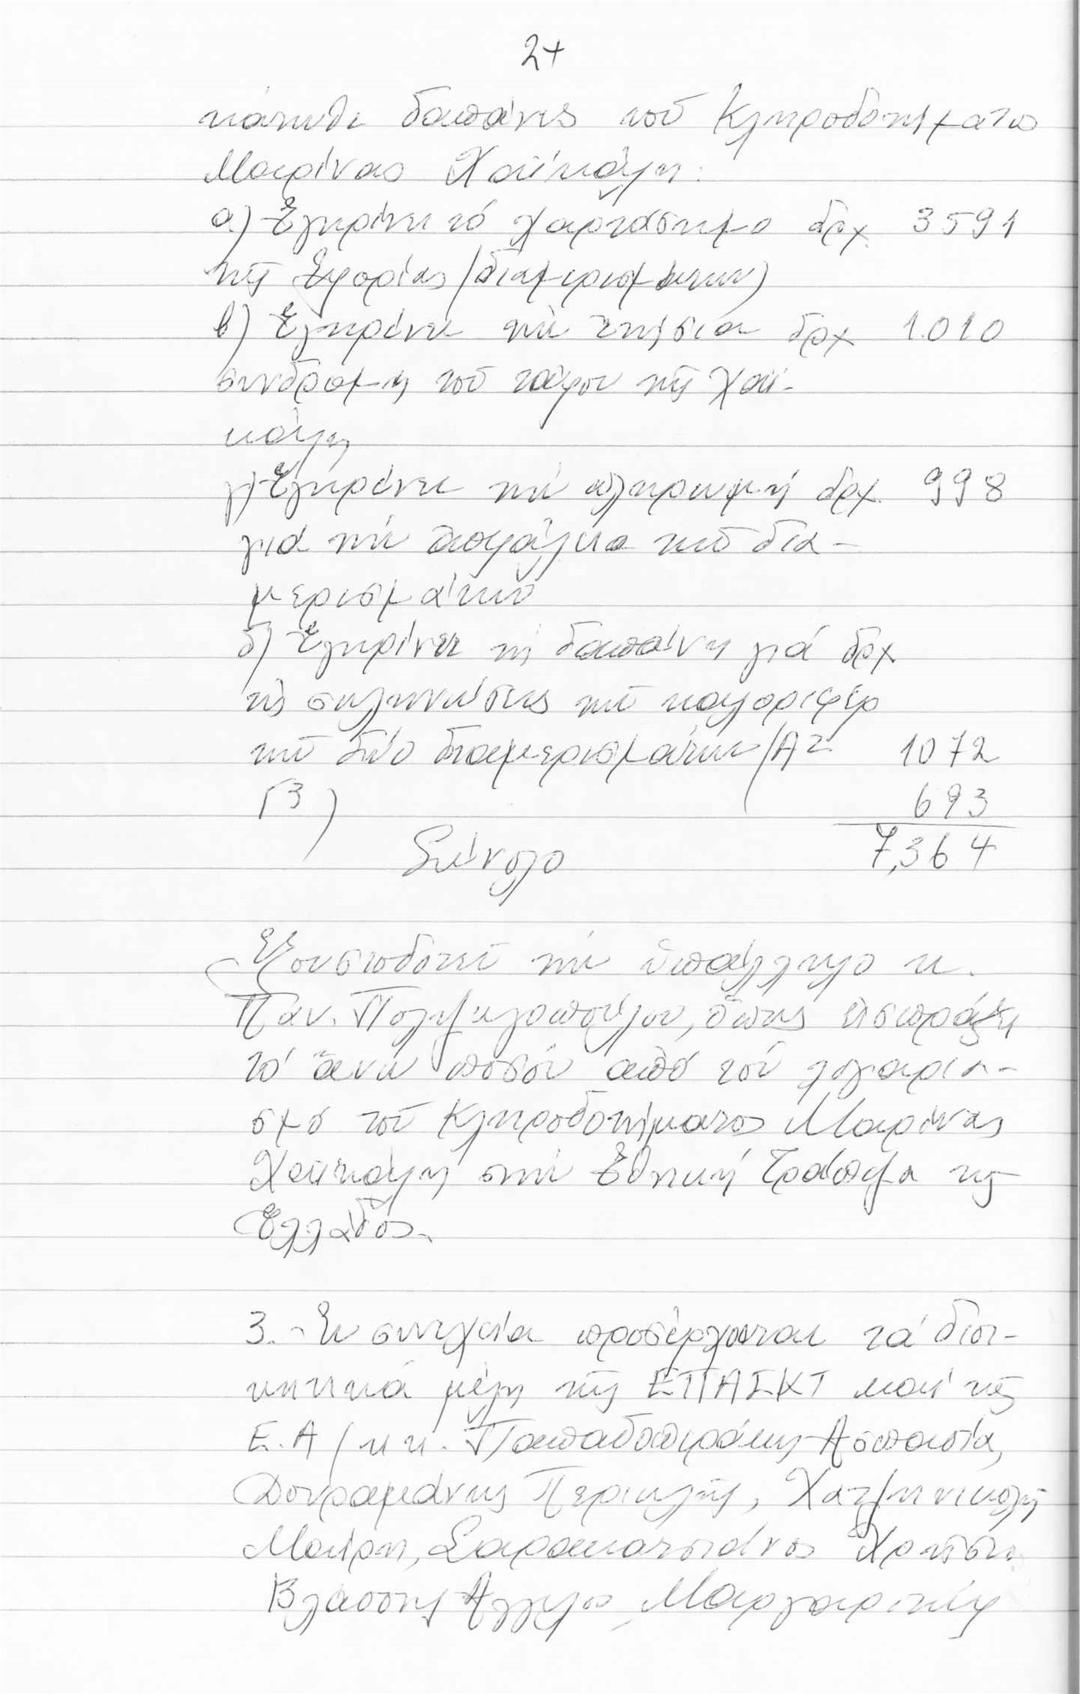 2+
κάτωθι δαπάνες τοῦ Κληροδοτήματος
Μαρίνας Χαϊκάλη:
α) Ἐγκρίνει τό χαρτόσημο δρχ 3591
τῆς Ἐφορίας (διαμερισμάτων)
β) Ἐγκρίνει τήν ἐτήσια δρχ 1.010
συνδρομή τοῦ τάφου τῆς Χαϊ-
κάλη
γ) Ἐγκρίνει τήν πληρωμή δρχ. 998
γιά τήν ἀσφάλεια τῶν δια-
μερισμάτων
δ) Ἐγκρίνει τή δαπάνη γιά δρχ
τίς σωληνώσεις τῶν καλοριφέρ
τῶν δύο διαμερισμάτων (Α2 1072
Γ3) 693
Σύνολο 7,364
Ἐξουσιοδοτεῖ τήν ὑπάλληλο κ.
Παν. Πολυζωγοπούλου, ὅπως εἰσπράξει
τό ἄνω ποσόν ἀπό τόν λογαρια-
σμό τοῦ Κληροδοτήματος Μαρίνας
Χαϊκάλη στήν Ἐθνική Τράπεζα τῆς
Ἑλλάδος.
3.- Ἐν συνεχεία προσέρχονται τά διοι-
κητικά μέλη τῆς ΕΠΑΣΚΤ καί τῆς
Ε.Α (κ.κ. Παπαδοπεράκης Ἀσπασία,
Δουραμάνης Περικλῆς, Χατζηνικολῆ
Μαίρη, Σαρακατσιάνος Χρῆστος,
Βλάσσης Ἄγγελος, Μαργαρίτη